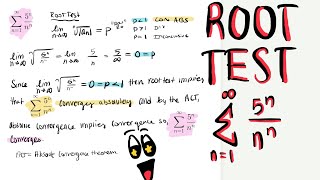 ∞ Σ n=1 5ⁿ/nⁿ
Root Test
lim n→∞ ⁿ√|an| = p
p<1 CON ABS
p>1 D
p=1 Inconclusive
lim n→∞ ⁿ√(5ⁿ/nⁿ) = lim n→∞ 5/n = 5/∞ = 0 = p
Since lim n→∞ ⁿ√(5ⁿ/nⁿ) = 0 = p < 1 then root test implies
that ∞ Σ n=1 5ⁿ/nⁿ converges absolutely and by the ACT,
absolute convergence implies convergence so, ∞ Σ n=1 5ⁿ/nⁿ
Converges.
ACT = Absolute Convergence theorem
ROOT
TEST
∞ Σ n=1 5ⁿ/nⁿ